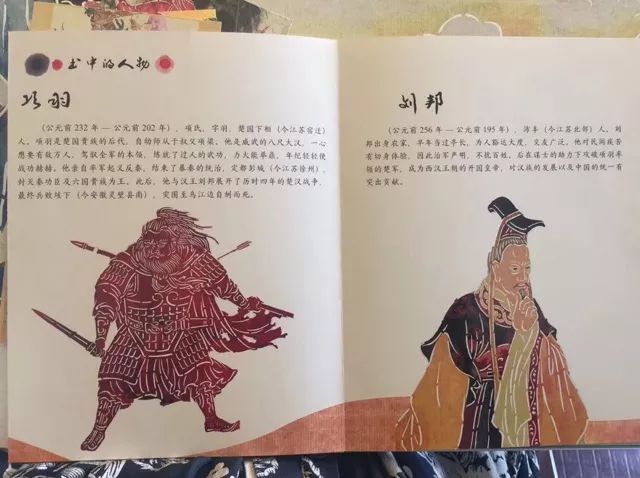 书中的人物
项羽
(公元前 232 年 — 公元前 202 年),项氏,字羽,楚国下相(今江苏宿迁)
人。项羽是楚国贵族的后代,自幼师从于叔父项梁。他是威武的八尺大汉,一心
想要有敌万人、驾驭全军的本领,练就了过人的武功,力大能举鼎,年纪轻轻便
战功赫赫。他亲自率军起义反秦,结束了暴秦的统治,定都彭城(今江苏徐州),
封灭秦功臣及六国贵族为王。此后,他与汉王刘邦展开了历时四年的楚汉战争,
最终兵败垓下(今安徽灵壁县南),突围至乌江边自刎而死。
刘邦
(公元前 256 年 — 公元前 195 年),沛丰(今江苏北部)人。刘
邦出身农家,早年当过亭长,为人豁达大度,交友广泛。他对民间疾苦
有切身体验,因此治军严明,不扰百姓,后在谋士的助力下攻破项羽率
领的楚军,成为西汉王朝的开国皇帝,对汉族的发展以及中国的统一有
突出贡献。